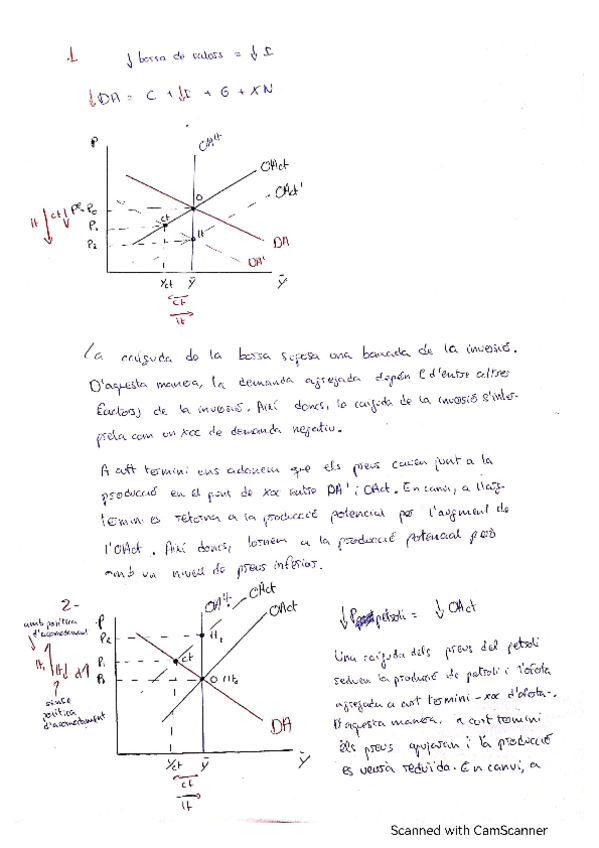 .1
↓ borsa de valors = ↓ I
↓DA = C + ↓I + G + XN
P
OAlt
OAct
OAct'
Pe=P0
P1
P2
lt
ct
O
ct
lt
DA
DA'
Yct
Ȳ
Y
ct
lt
La caiguda de la borsa suposa una baixada de la inversió.
D'aquesta manera, la demanda agregada depén (d'entre altres
factors) de la inversió. Així doncs, la caiguda de la inversió s'inter-
preta com un xoc de demanda negatiu.
A curt termini ens adonem que els preus cauen junt a la
producció en el punt de xoc entre DA' i OAct. En canvi, a llarg
termini es retorna a la producció potencial per l'augment de
l'OAct. Així doncs, tornem a la producció potencial però
amb un nivell de preus inferiors.
2-
amb política
d'acomodament
sense
política
d'acomodament
P
P2
P1
P0
lt1
ct
OAlt
OAct
OAct
lt1
ct
O lt2
DA
Yct
Ȳ
Y
ct
lt
↓P petroli = ↓ OAct
Una caiguda dels preus del petroli
redueix la producció de petroli i l'oferta
agregada a curt termini -xoc d'oferta-.
D'aquesta manera, a curt termini
els preus apujaran i la producció
es veurà reduïda. En canvi, a
Scanned with CamScanner